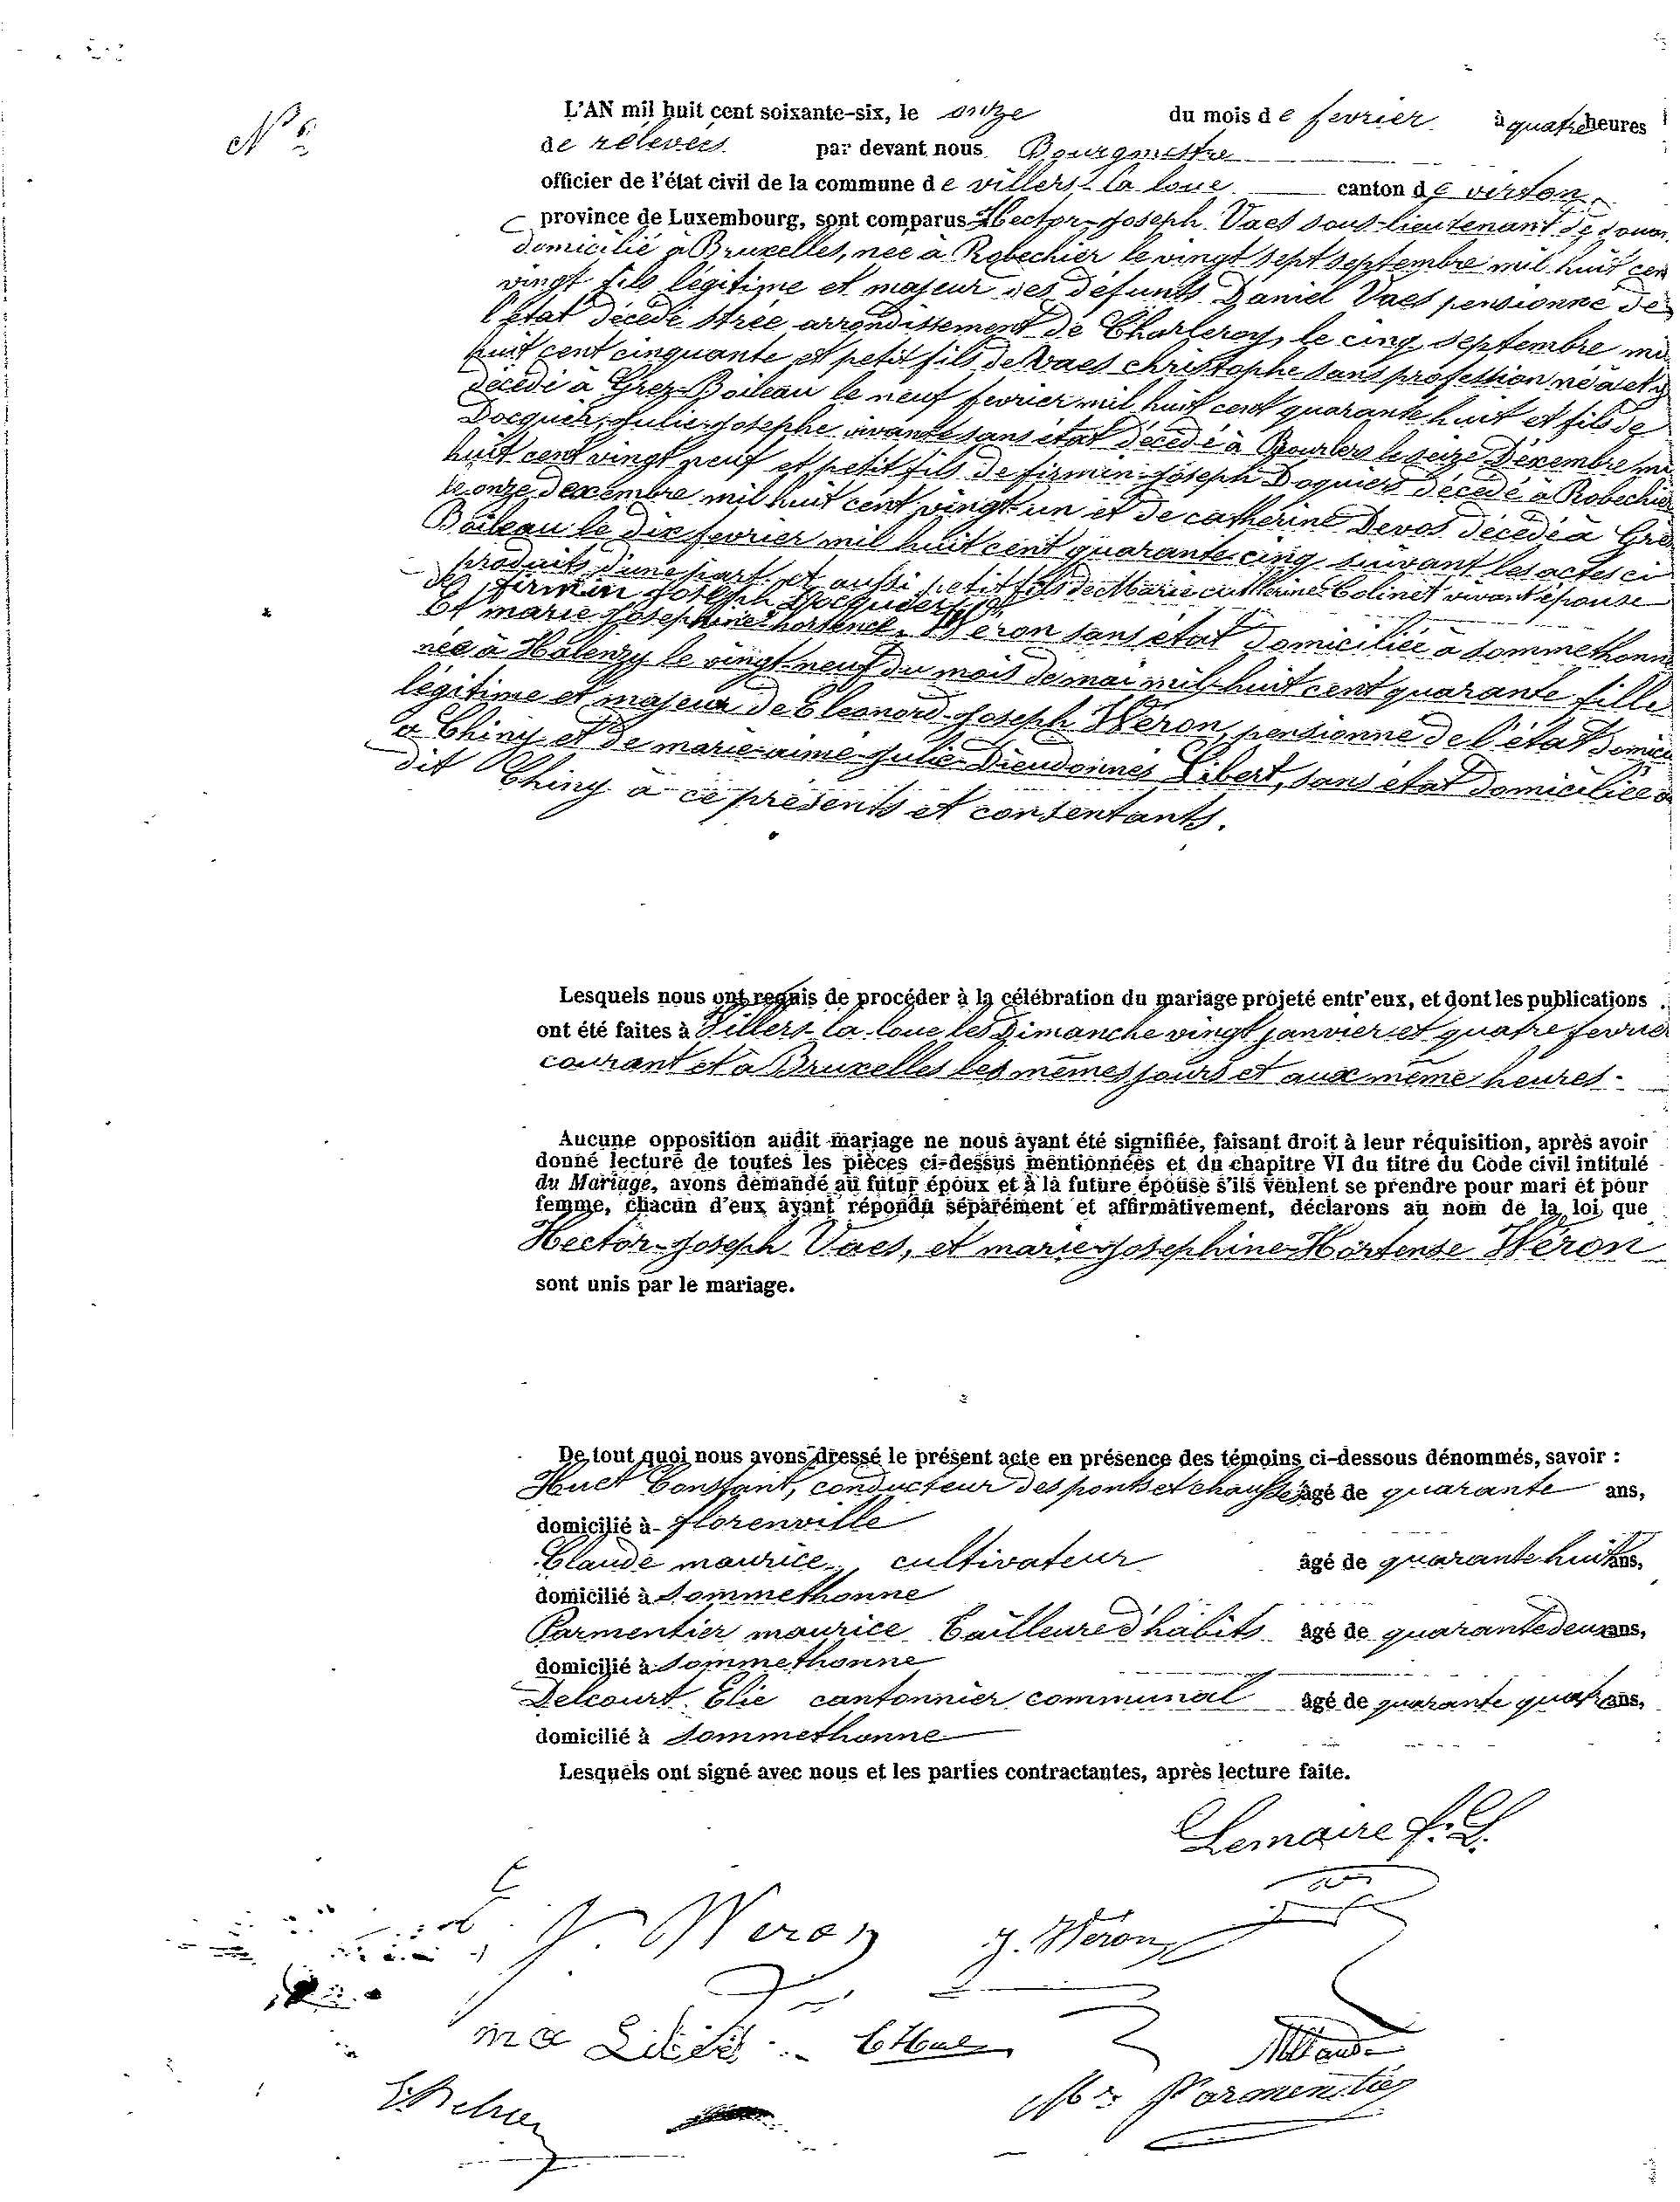 N°
L'AN mil huit cent soixante-six, le onze du mois de fevrier à quatre heures
de relevées par devant nous Bourgmestre
officier de l'état civil de la commune de villers-la loue canton de virton
province de Luxembourg, sont comparus Hector-Joseph Vaes sous-lieutenant de douan
domicilié à Bruxelles, née à Robechier le vingt sept septembre mil huit cen
vingt fils légitime et majeur des défunts Daniel Vaes pensionné de
l'état décédé Strée arrondissement de Charleroy, le cinq septembre mil
huit cent cinquante et petit fils de Vaes christophe sans profession né à et
décédé à Grez-Boileau le neuf fevrier mil huit cent quarante huit et fils de
Docquier, Julie-Josephe vivante sans état décédé à Bourlers le seize Décembre mil
huit cent vingt neuf et petit fils de firmin-joseph Doquiers décédé à Robechies
le onze decembre mil huit cent vingt-un et de catherine Devos décédé à Gré
Boileau le dix fevrier mil huit cent quarante-cinq suivant les actes ci
produits d'une part et aussi petit fils de Marie catherine Colinet vivant épouse
de firmin Joseph Docquier
Et marie Josephine-hortence Wéron sans état domiciliée à sommethonne
née à Halenzy le vingt-neuf du mois de mai mil-huit cent quarante fille
légitime et majeur de Eleonord-Joseph Wéron, pensionné de l'état domici
à Chiny et de marie-aimé-Julie-Dieudonnés Libert, sans état domiciliée à
dit Chiny à ce présents et consentants.
Lesquels nous ont requis de procéder à la célébration du mariage projeté entr'eux, et dont les publications
ont été faites à Villers-la-loue les Dimanche vingt janvier et quatre fevrier
courant et à Bruxelles les mêmes jours et aux même heures.
Aucune opposition audit mariage ne nous ayant été signifiée, faisant droit à leur réquisition, après avoir
donné lecture de toutes les pièces ci-dessus mentionnées et du chapitre VI du titre du Code civil intitulé
du Mariage, avons demandé au futur époux et à la future épouse s'ils veulent se prendre pour mari et pour
femme, chacun d'eux ayant répondu séparément et affirmativement, déclarons au nom de la loi que
Hector-Joseph Vaes, et marie-Josephine-Hortense Wéron
sont unis par le mariage.
De tout quoi nous avons dressé le présent acte en présence des témoins ci-dessous dénommés, savoir :
Huet Constant, conducteur des ponts et chaussées âgé de quarante ans,
domicilié à florenville
Claude maurice, cultivateur âgé de quarante huit ans,
domicilié à Sommethonne
Parmentier maurice tailleure d'habits âgé de quarante deux ans,
domicilié à Sommethonne
Delcourt Elie cantonnier communal âgé de quarante quatre ans,
domicilié à Sommethonne
Lesquels ont signé avec nous et les parties contractantes, après lecture faite.
Lemaire
J. Weron J. Wéron
ma Libert
Parmentier